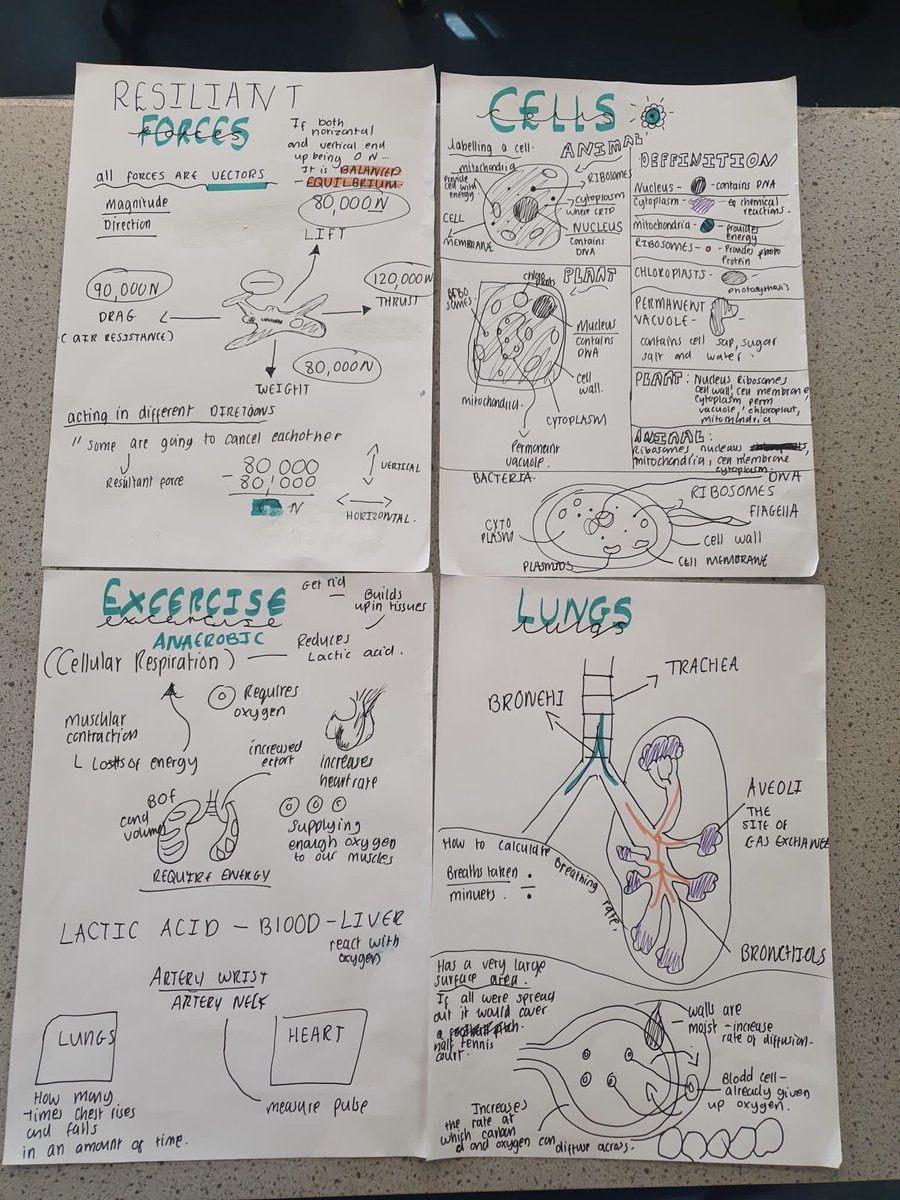 RESILIANT
FORCES
forces
If both
horizontal
and vertical end
up being 0 N...
It is BALANCED
- EQUILBRIUM
all forces are VECTORS
Magnitude
Direction
80,000N
LIFT
90,000N
DRAG
(AIR RESISTANCE)
120,000N
THRUST
80,000N
WEIGHT
acting in different DIRETIONS
"some are going to cancel eachother
Resultant force
80,000
- 80,000
0 N
VERTICAL
HORIZONTAL.
CELLS
cells
labelling a cell.
ANIMAL
mitochondria
Provide
cell with
energy
CELL
MEMBRANE
RIBOSOMES
cytoplasm
NUCLEUS
contains
DNA
PLANT
chloroplasts
RIBOSOMES
Nucleus
contains
DNA
cell
wall.
mitochondria.
CYTOPLASM
Permanent
vacuole.
DEFFINITION
Nucleus - - contains DNA
Cytoplasm - chemical
reactions.
mitochondria - - provides
energy
RIBOSOMES - - Provides
Protein
CHLOROPLASTS -
photosythesis
PERMANENT
VACUOLE -
contains cell sap, sugar
salt and water.
PLANT: Nucleus Ribosomes
cell wall, cell membrane,
cytoplasm perm
vacuole, chloroplast,
mitochondria
ANIMAL:
Ribosomes nucleus
mitochondria, cell membrane
cytoplasm.
BACTERIA.
DNA
RIBOSOMES
FlAGEllA
CYTO
PLASM
Cell wall
CEll MEMBRANE
PLASMIDS
EXCERCISE
excercise
ANAEROBIC
Get rid
Builds
up in tissues
(Cellular Respiration) - Reduces
Lactic acid.
Requires
oxygen
Musclular
contraction
L losts of energy
increased
effort
increases
heart rate
BOF
and
volume
Supplying
enough oxygen
to our muscles
REQUIRE ENERGY
LACTIC ACID - BlOOD - LIVER
react with
oxygen
ARTERY WRIST
ARTERY NECK
LUNGS
HEART
How many
times chest rises
and falls
in an amount of time.
measure pulse
LUNGS
lungs
BRONCHI
TRACHEA
AVEOLI
THE
SITE OF
GAS EXCHANGE
BRONCHIOLS
How to calculate breathing rate.
Breaths taken ÷
minuets.
Has a very large
surface area.
If all were spread
out it would cover
a
half tennis
court.
walls are
moist - increase
rate of diffusion.
Blodd cell -
already given
up oxygen.
Increases
the rate at
which carbon
d and oxygen can diffuse across.